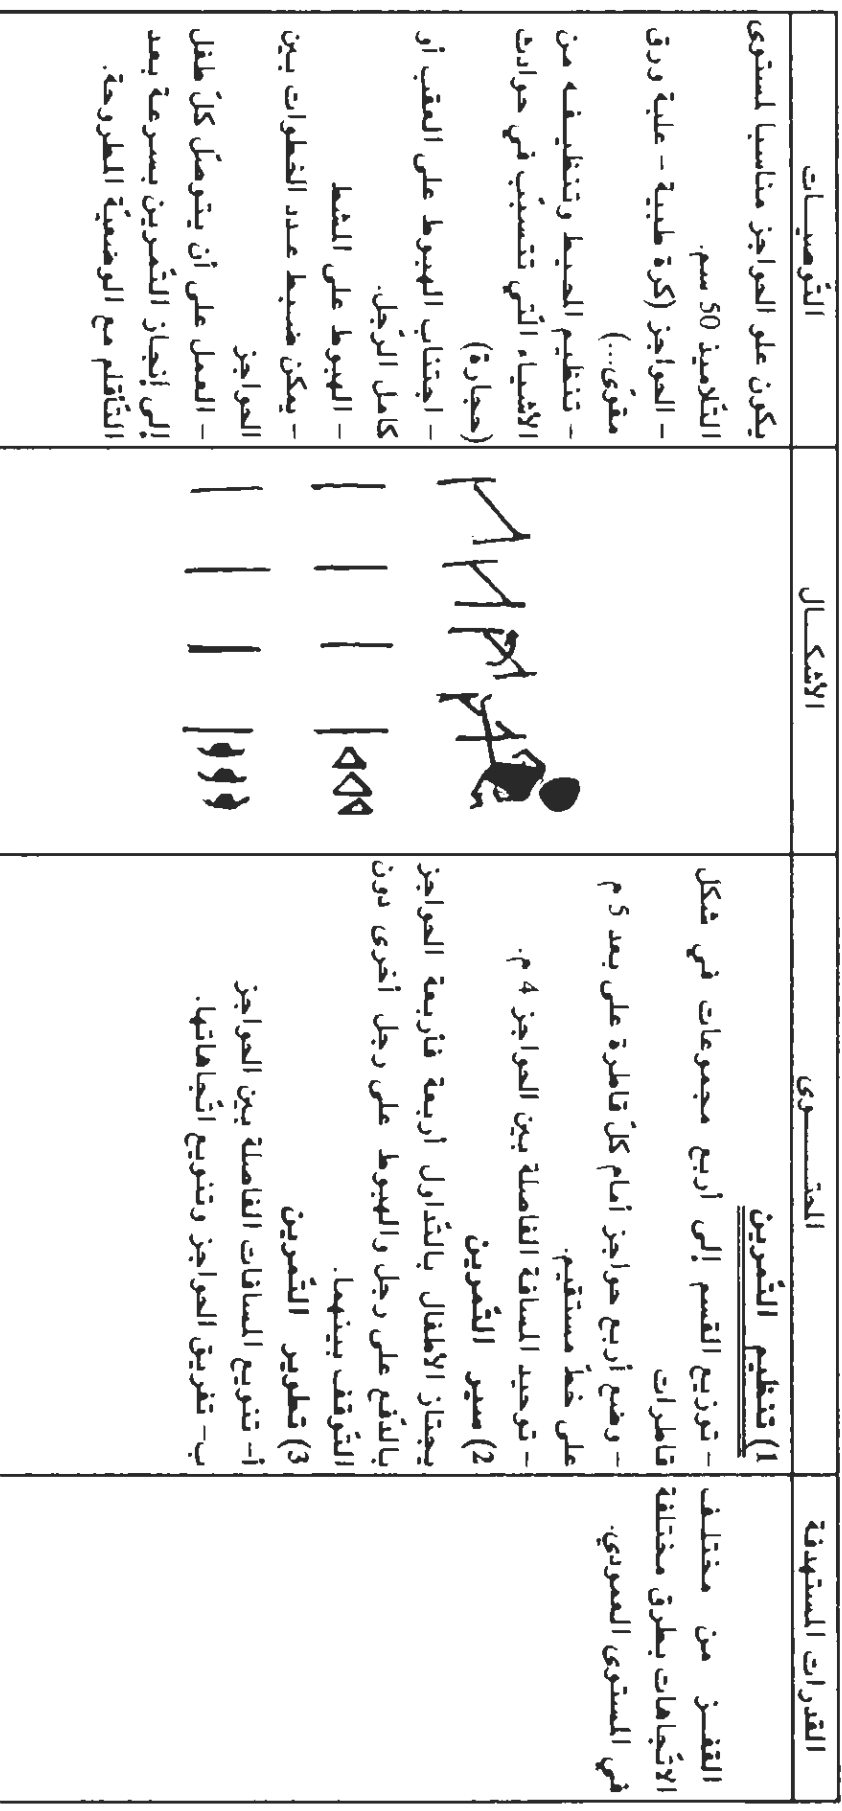 القدرات المستهدفة
القفز من مختلف
الاتّجاهات بطرق مختلفة
في المستوى العمودي.
المحتـــوى
1) تنظيم التّمرين
- توزيع القسم إلى أربع مجموعات في شكل
قاطرات
- وضع أربع حواجز أمام كلّ قاطرة على بعد 5 م
على خطّ مستقيم.
- توحيد المسافة الفاصلة بين الحواجز 4 م.
2) سير التّمرين
يجتاز الأطفال بالتّداول أربعة فأربعة الحواجز
بالدّفع على رجل والهبوط على رجل أخرى دون
التّوقف بينهما.
3) تطوير التّمرين
أ- تنويع المسافات الفاصلة بين الحواجز
ب- تفريق الحواجز وتنويع اتّجاهاتها.
الأشكــال
التّوصيــات
يكون علو الحواجز مناسبا لمستوى
التّلاميذ 50 سم.
- الحواجز (كرة طبية - علبة ورق
مقوّى...)
- تنظيم المحيط وتنظيفه من
الأشياء الّتي تتسبّب في حوادث
(حجارة)
- اجتناب الهبوط على العقب أو
كامل الرّجل.
- الهبوط على المشط
- يمكن ضبط عدد الخطوات بين
الحواجز
- العمل على أن يتوصّل كلّ طفل
إلى إنجاز التّمرين بسرعة بعد
التّأقلم مع الوضعيّة المطروحة.